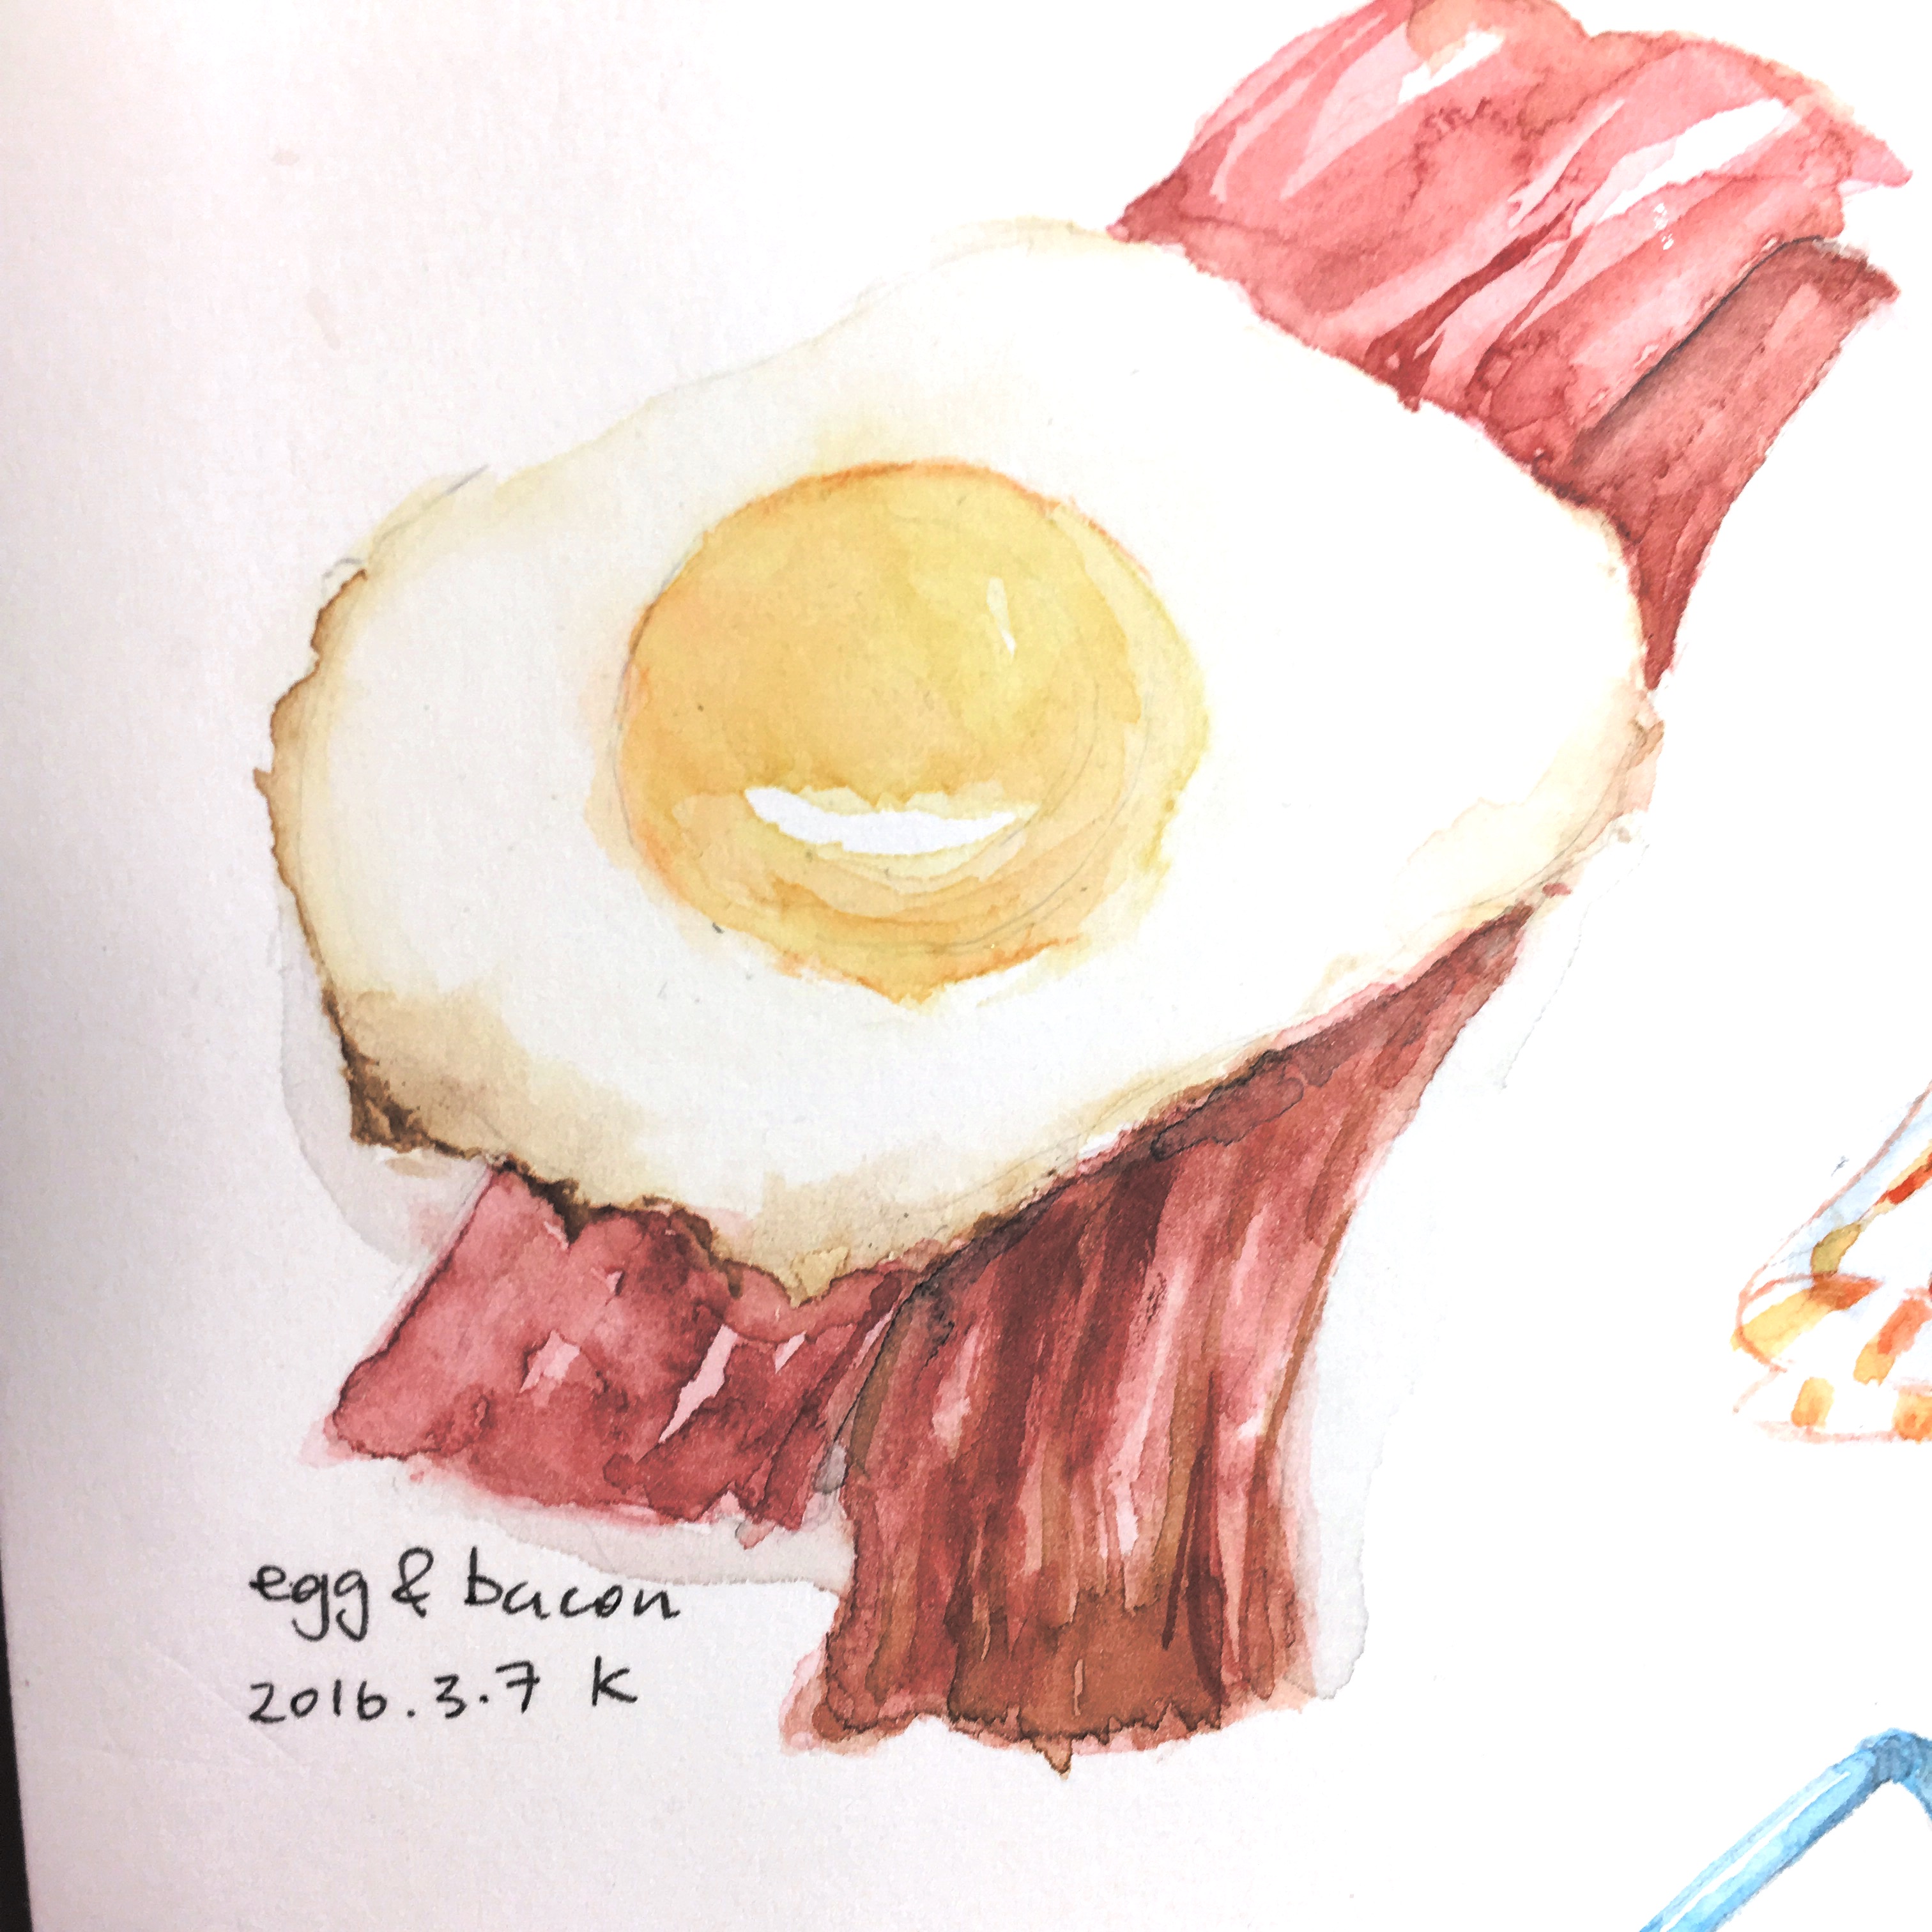 egg & bacon
2016.3.7 K